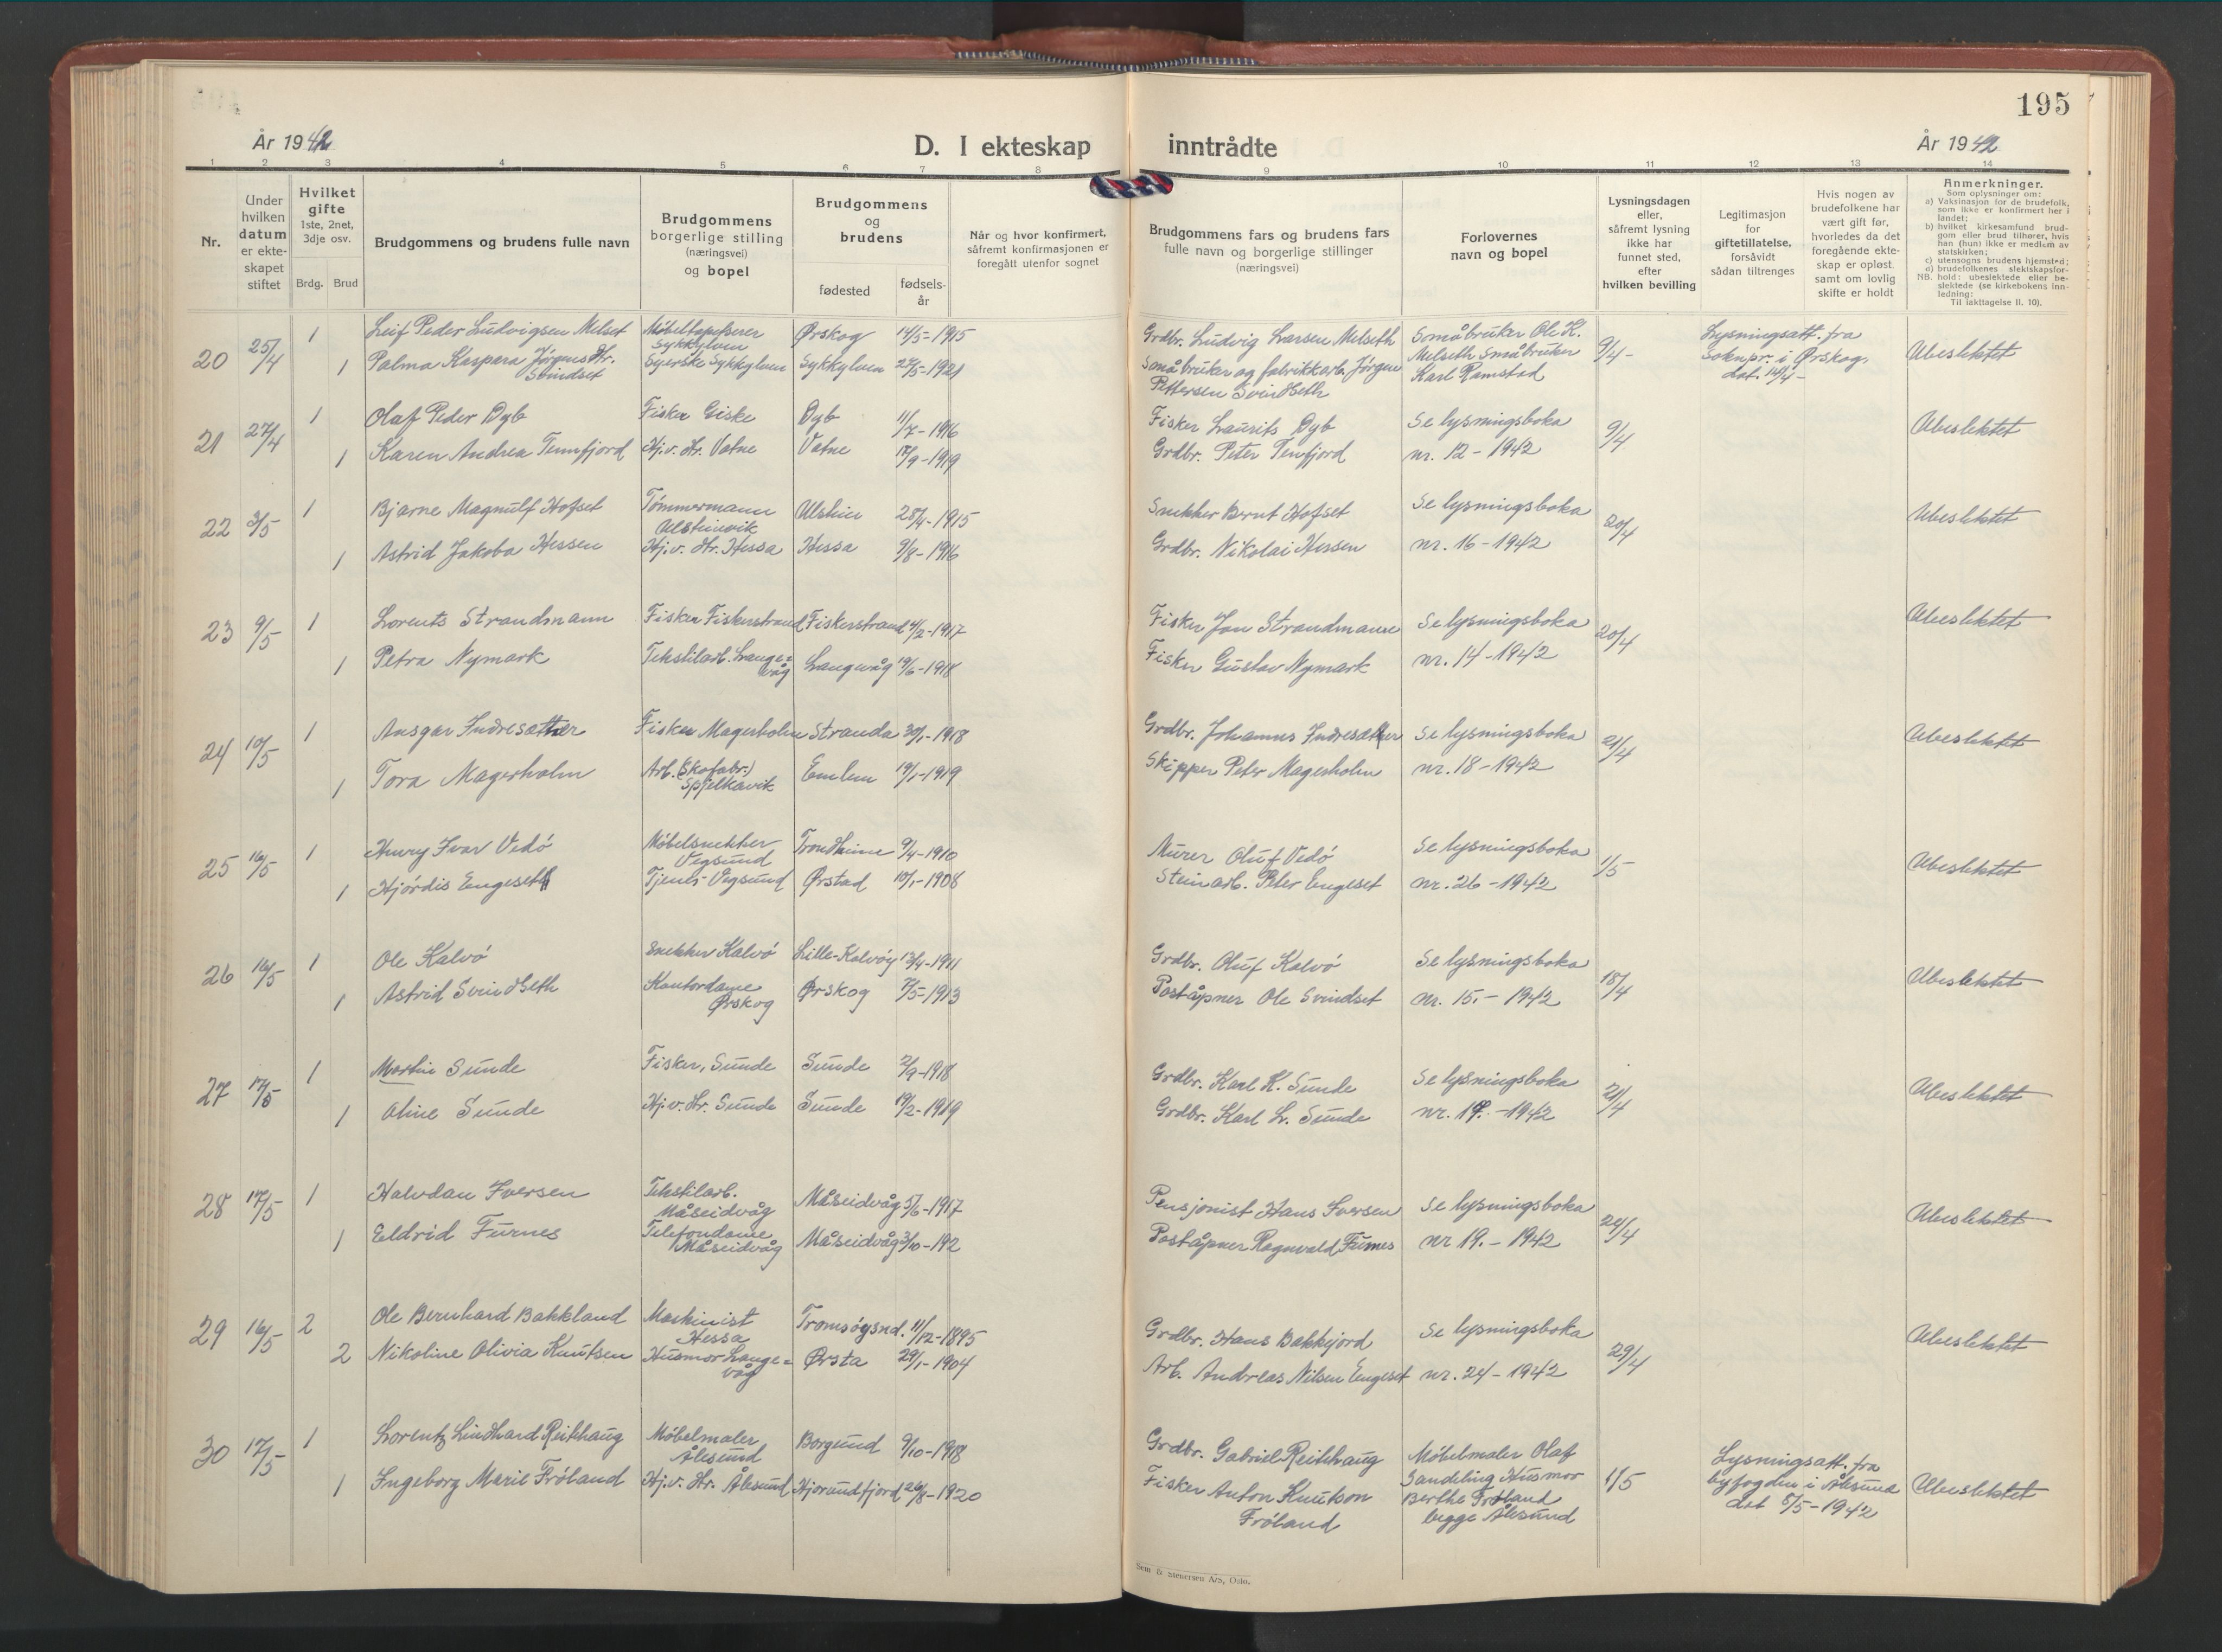 195
År 1942
D. I ekteskap inntrådte
År 1942
1 2 3 4 5 6 7 8 9 10 11 12 13 14
Nr.
Under hvilken datum er ekteskapet stiftet
Hvilket gifte 1ste, 2net, 3dje osv.
Brdg. Brud
Brudgommens og brudens fulle navn
Brudgommens borgerlige stilling (næringsvei) og bopel
Brudgommens og brudens
fødested
fødselsår
Når og hvor konfirmert, såfremt konfirmasjonen er foregått utenfor sognet
Brudgommens fars og brudens fars fulle navn og borgerlige stillinger (næringsvei)
Forlovernes navn og bopel
Lysningsdagen eller, såfremt lysning ikke har funnet sted, efter hvilken bevilling
Legitimasjon for giftetillatelse, forsåvidt sådan tiltrenges
Hvis nogen av brudefolkene har vært gift før, hvorledes da det foregående ekteskap er opløst samt om lovlig skifte er holdt
Anmerkninger.
Som oplysninger om:
a) Vaksinasjon for de brudefolk, som ikke er konfirmert her i landet;
b) hvilket kirkesamfund brudgom eller brud tilhører, hvis han (hun) ikke er medlem av statskirken;
c) utensogns brudens hjemsted;
d) brudefolkenes slektskapsforhold: ubeslektede eller beslektede (se kirkebokens innledning:
NB. Til iakttagelse II. 10).
20 25/4 1 Leif Peder Ludvigsen Melset Møbeltapetserer Sykkylven Ørskog 14/5-1915 Grdbr. Ludvig Larsen Melseth Småbruker Ole K. 9/4- Lysningsatt. fra Ubeslektet
1 Palma Kaspara Jørgensdtr. Svindset Syerske Sykkylven Sykkylven 27/5-1921 Småbruker og fabrikkarb. Jørgen Pettersen Svindseth Melseth Småbruker Karl Ramstad soknpr. i Ørskog, dat. 14/4-
21 27/4 1 Olaf Peder Dyb Fisker Giske Dyb 11/7-1916 Fisker Laurits Dyb Se lysningsboka 9/4 Ubeslektet
1 Karen Andrea Tennfjord Hj.v. dtr. Vatne Vatne 17/9-1919 Grdbr. Peter Tenfjord nr. 12-1942
22 3/5 1 Bjarne Magnulf Hofset Tømmermann Ulsteinvik Ulstein 28/4-1915 Snekker Bernt Hofset Se lysningsboka 20/4 Ubeslektet
1 Astrid Jakoba Hessen Hj.v. dtr. Hessa Hessa 9/8-1916 Grdbr. Nikolai Hessen nr. 16-1942
23 9/5 1 Lorents Strandmann Fisker Fiskerstrand Fiskerstrand 4/2-1917 Fisker Jon Strandmann Se lysningsboka 20/4 Ubeslektet
1 Petra Nymark Tekstilarb. Langevåg Langevåg 19/6-1918 Fisker Gustav Nymark nr. 14-1942
24 10/5 1 Ansgar Indresæther Fisker Magerholm Stranda 30/1-1918 Grdbr. Johannes Indresæther Se lysningsboka 21/4 Ubeslektet
1 Tora Magerholm Arb. (Skofabr.) Spjelkavik Emlem 19/1-1919 Skipper Peter Magerholm nr. 18-1942
25 16/5 1 Henry Ivar Vedø Møbelsnekker Vegsund Trondheim 9/4-1910 Murer Oluf Vedø Se lysningsboka 1/5 Ubeslektet
1 Hjørdis Engeseth Tjener Vegsund Ørstad 10/1-1908 Steinarb. Peter Engeset nr. 26-1942
26 16/5 1 Ole Kalvø Snekker Kalvø Lille-Kalvøy 13/4-1911 Grdbr. Oluf Kalvø Se lysningsboka 18/4 Ubeslektet
1 Astrid Svindseth Kontordame Ørskog Ørskog 7/5-1913 Poståpner Ole Svindset nr. 15.-1942
27 17/5 1 Martin Sunde Fisker, Sunde Sunde 2/9-1918 Grdbr. Karl K. Sunde Se lysningsboka 21/4 Ubeslektet
1 Oline Sunde Hj.v. dtr. Sunde Sunde 19/2-1919 Grdbr. Karl L. Sunde nr. 17.-1942
28 17/5 1 Halvdan Iversen Tekstilarb. Måseidvåg Måseidvåg 5/6-1917 Pensjonist Hans Iversen Se lysningsboka 24/4 Ubeslektet
1 Eldrid Furnes Telefondame Måseidvåg Måseidvåg 3/10-192 Poståpner Ragnvald Furnes nr 19.-1942
29 16/5 2 Ole Bernhard Bakkland Maskinist Hessa Tromsøysnd. 11/12-1895 Grdbr. Hans Bakkejord Se lysningsboka 29/4 Ubeslektet
2 Nikoline Olivia Knutsen Husmor Langevåg Ørsta 29/1-1904 Arb. Andreas Nilsen Engeset nr. 24-1942
30 17/5 1 Lorentz Lindhard Reithaug Møbelmaler Ålesund Borgund 9/10-1918 Grdbr. Gabriel Reithaug Møbelmaler Olaf 1/5 Lysningsatt. fra Ubeslektet
1 Ingeborg Marie Frøland Hj.v. dtr. Ålesund Hjørundfjord 26/8-1920 Fisker Anton Knutson Frøland Sandeling Husmor Berthe Frøland begge Ålesund byfogden i Ålesund dat 8/5-1942
Sem & Stenersen A/S, Oslo.